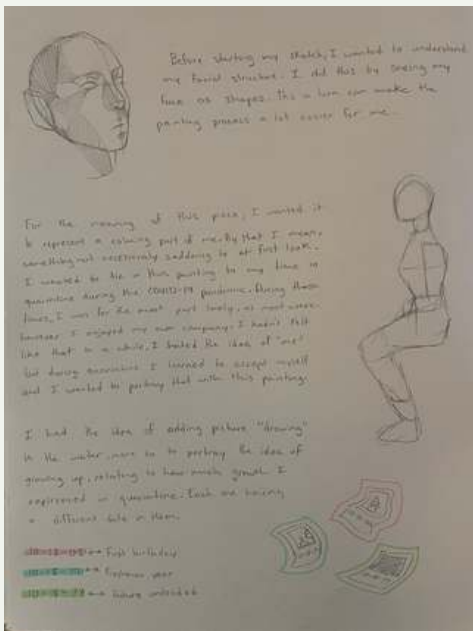 Before starting my sketch, I wanted to understand
my facial structure. I did this by seeing my
face as shapes. This in turn can make the
painting process a lot easier for me.
For the meaning of this piece, I wanted it
to represent a calming part of me. By that I mean,
something not excessively saddening to at first look.
I wanted to tie in this painting to my time in
quarantine during the COVID-19 pandemic. During these
times, I was for the most part lonely, as most were.
however I enjoyed my own company. I hadn't felt
like that in a while. I hated the idea of "me"
but during quarantine I learned to accept myself
and I wanted to portray that with this painting.
I had the idea of adding picture "drawing"
in the water more so to portray the idea of
growing up, relating to how much growth I
experienced in quarantine. Each one having
a different date in them.
First birthday
year
future undecided